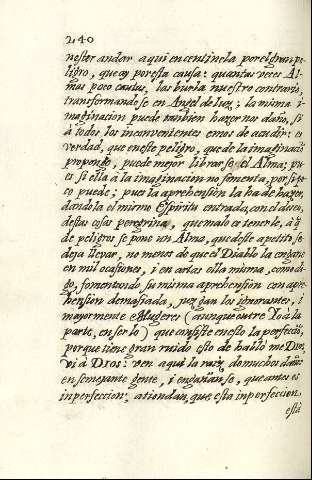 240
nester andar aqui en centinela por el gran pe-
ligro, que ay por esta causa: quantas veces Al-
mas poco cautas, las burla nuestro contrario,
transformandose en Angel de luz; la misma i-
maginacion puede tanbien hazernos daño, si
á todos los inconvenientes emos de acudir: es
verdad, que en este peligro, que de la imaginacio
propongo, puede mejor librarse el Alma; pu-
es si ella á la imaginacion no fomenta, por si po-
co puede; pues la aprehension la ha de hazer,
dandola el mismo Espiritu entrada, con el deseo,
destas cosas peregrinas, que malo es tenerle, á q
de peligros se pone un Alma, que deste apetito se
deja llevar, no menos dó que el Diablo la engañe
en mil ocasiones, i en artas ella misma, como di-
go, fomentando su misma aprehension con apre-
hension demasiada, juzgan los ignorantes, i
mayormente Mugeres (aunque entre Yo á la
parte, en serlo) que consiste en esto la perfeccio,
porque tiene gran ruido esto de habló me Dios,
vi á Dios: ven aqui la raiz de muchos daños
en semejante gente, i engañanse, que antes es
inperfeccion; atiendan, que esta inperfeccion
está